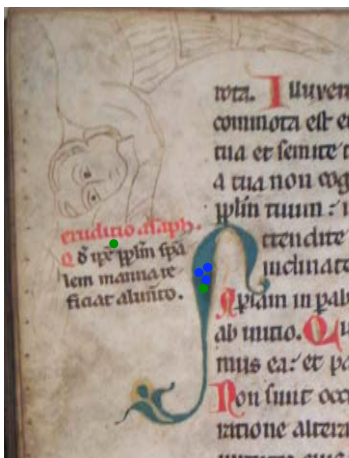 eruditio asaph.
Q̄ d̄ xp̄e pp̄lm̄ sp̄a
lem manna re
ficiat alim̄to.
tota. Illuxer
commota est et
tua et semite t
a tua non cog
pp̄lm̄ tuum :
ttendite
inclinate
Aperiam in pab
ab initio. Qu
mus ea: et pa
Non sunt occ
ratione altera